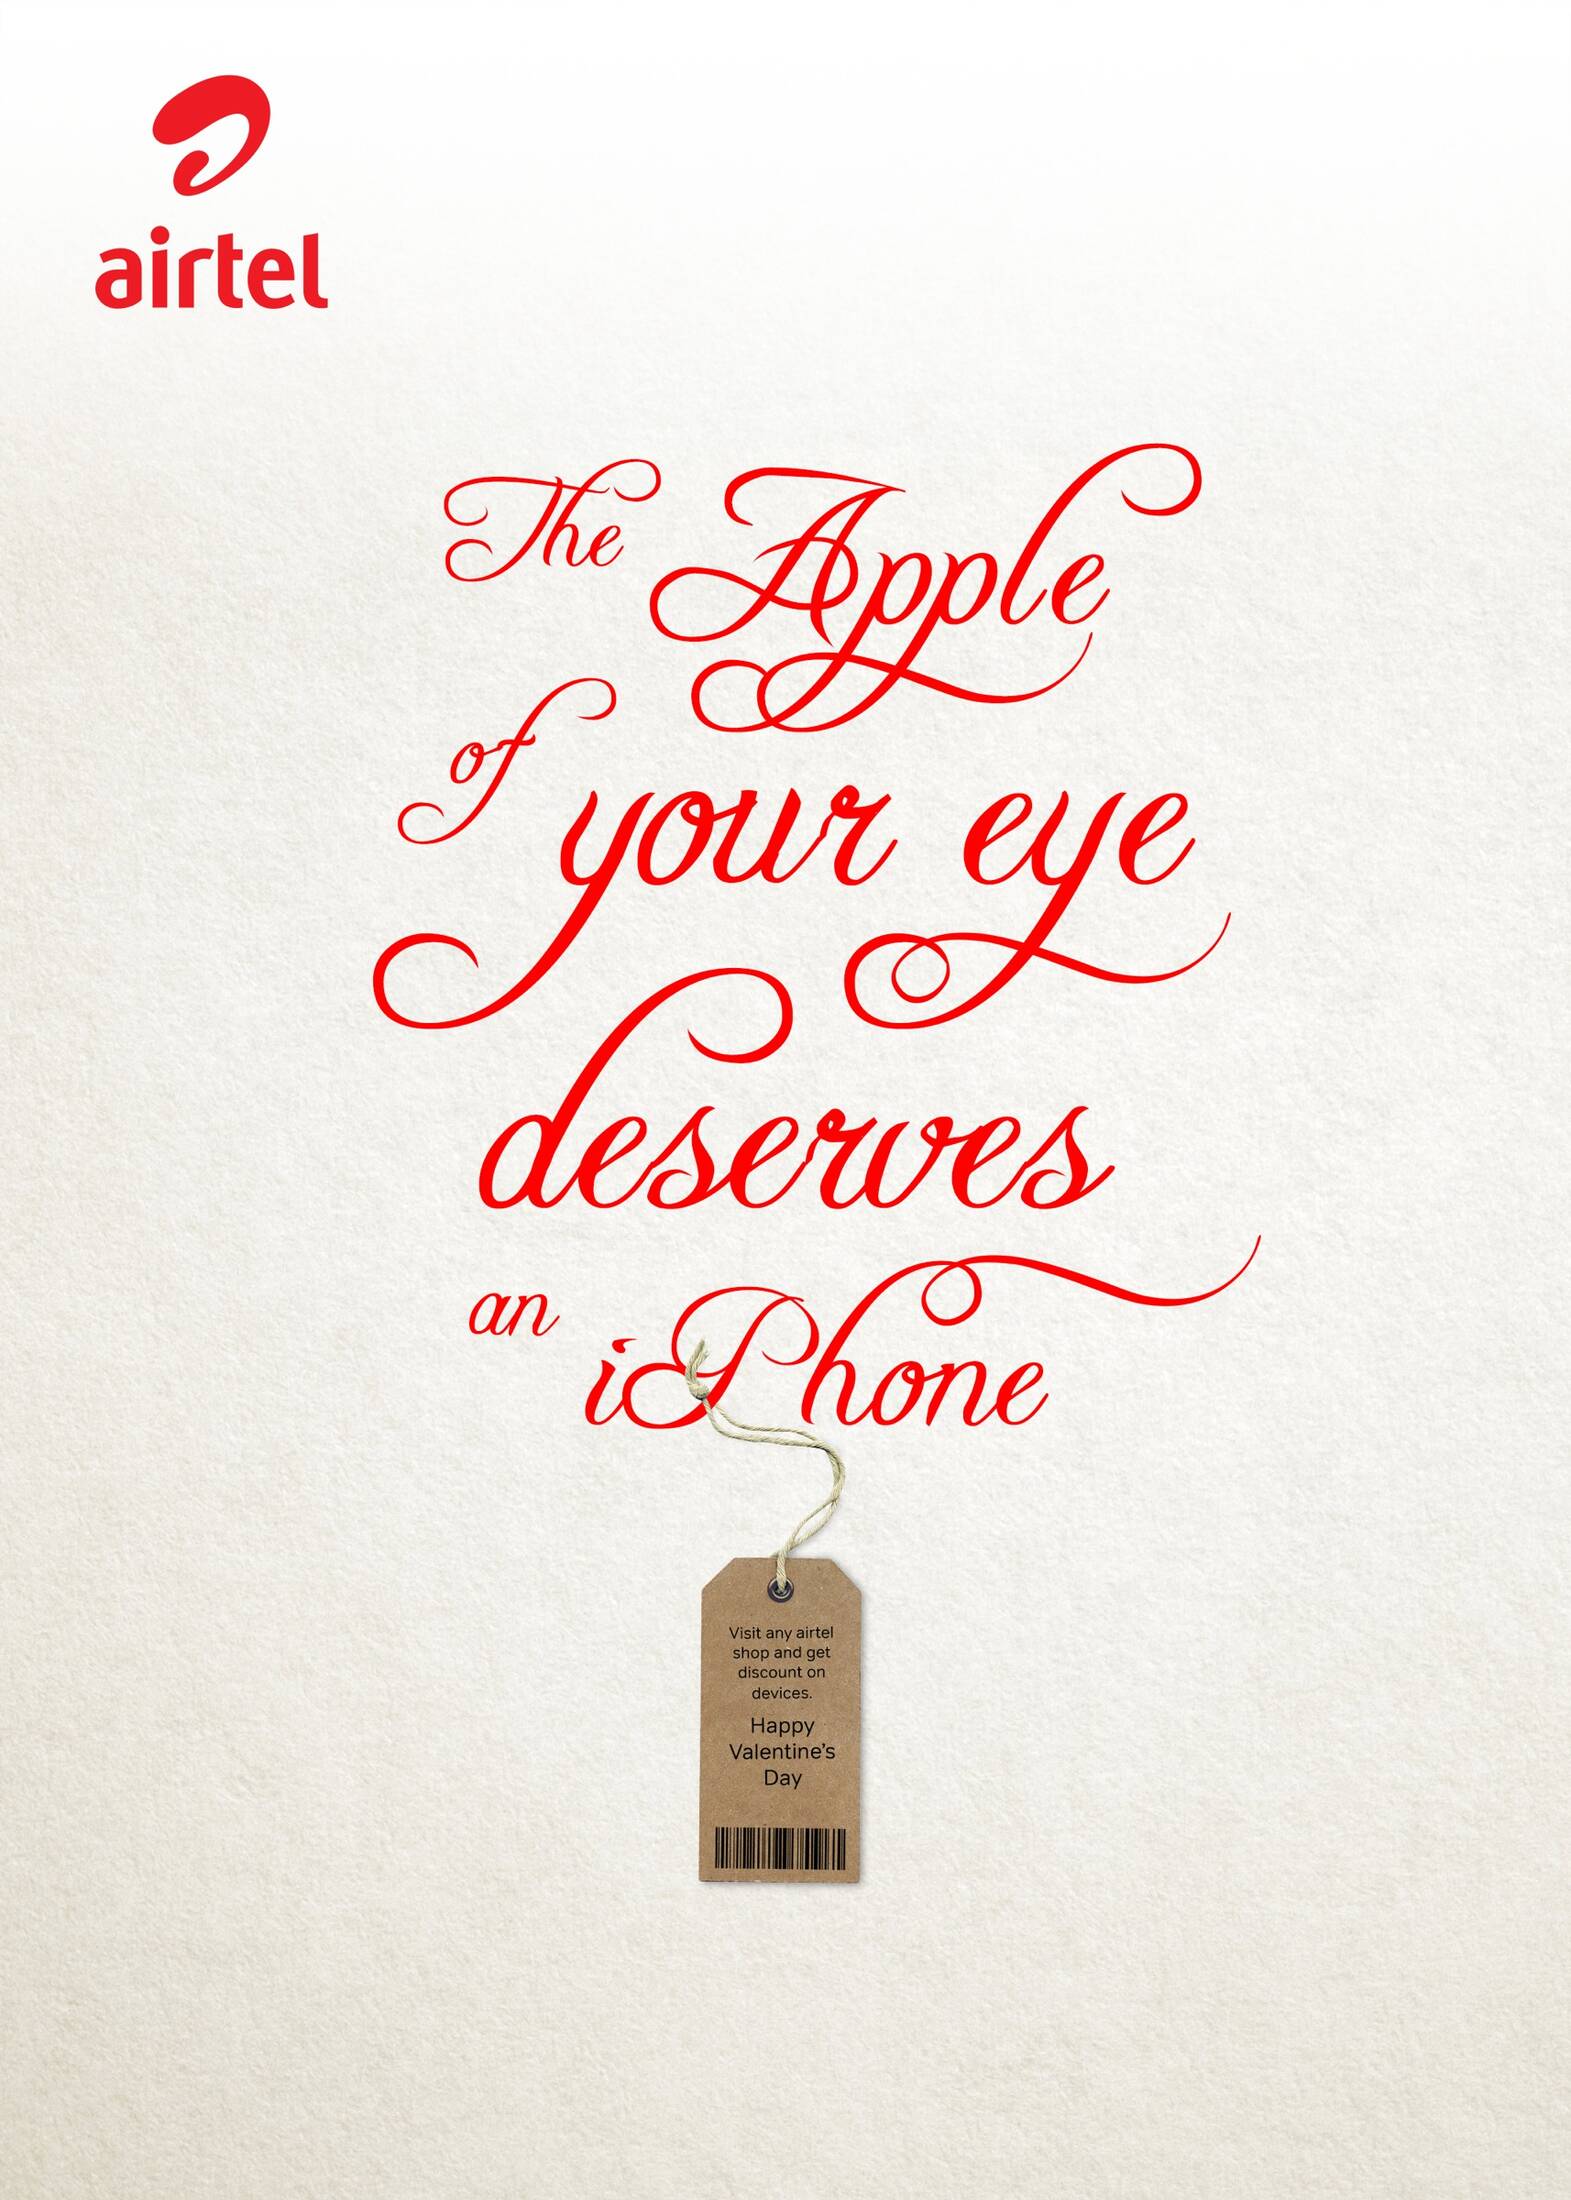 airtel
The Apple
of your eye
deserves
an iPhone
Visit any airtel
shop and get
discount on
devices.
Happy
Valentine's
Day